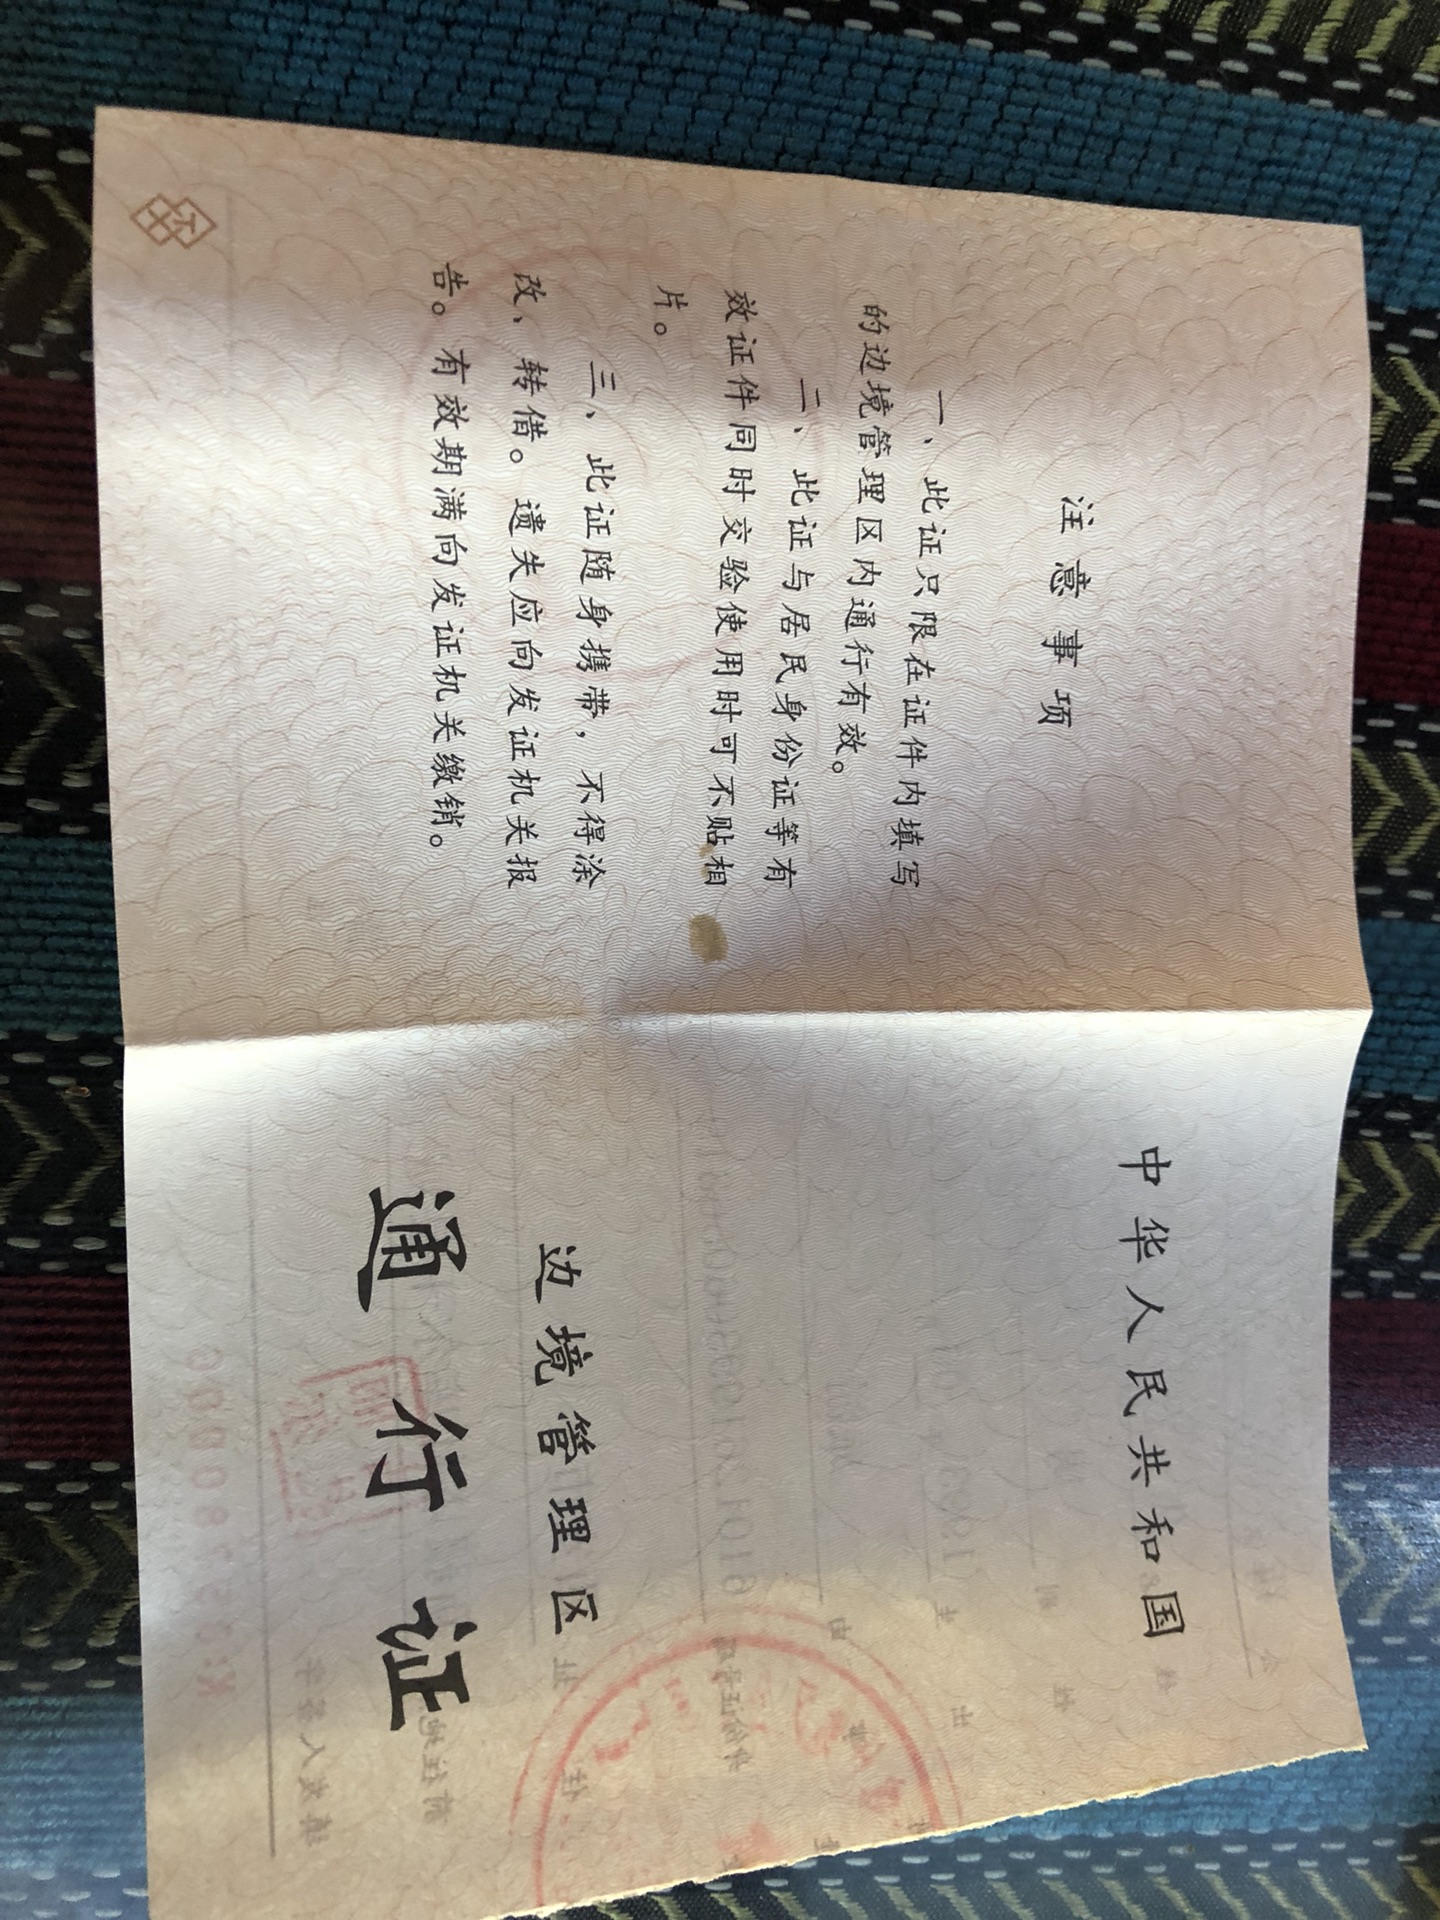 中华人民共和国
边境管理区
通行证
注意事项
一、此证只限在证件内填写
的边境管理区内通行有效。
二、此证与居民身份证等有
效证件同时交验使用时可不贴相
片。
三、此证随身携带，不得涂
改、转借。遗失应向发证机关报
告。有效期满向发证机关缴销。